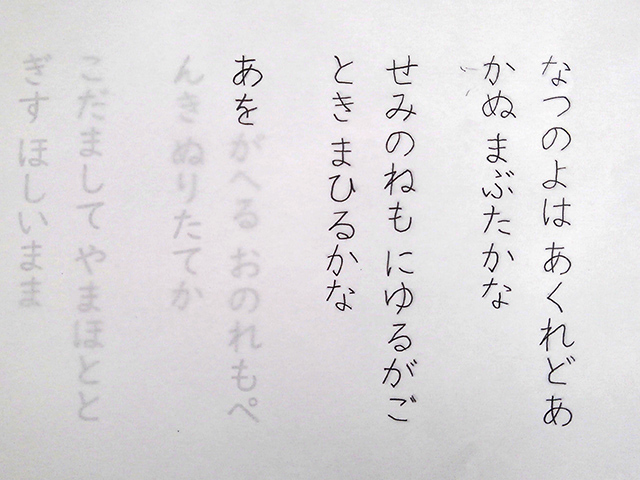 なつのよは あくれどあ
かぬ まぶたかな
せみのねも にゆるがご
とき まひるかな
あを がへる おのれもペ
んき ぬりたてか
こだまして やまほとと
ぎす ほしいまま